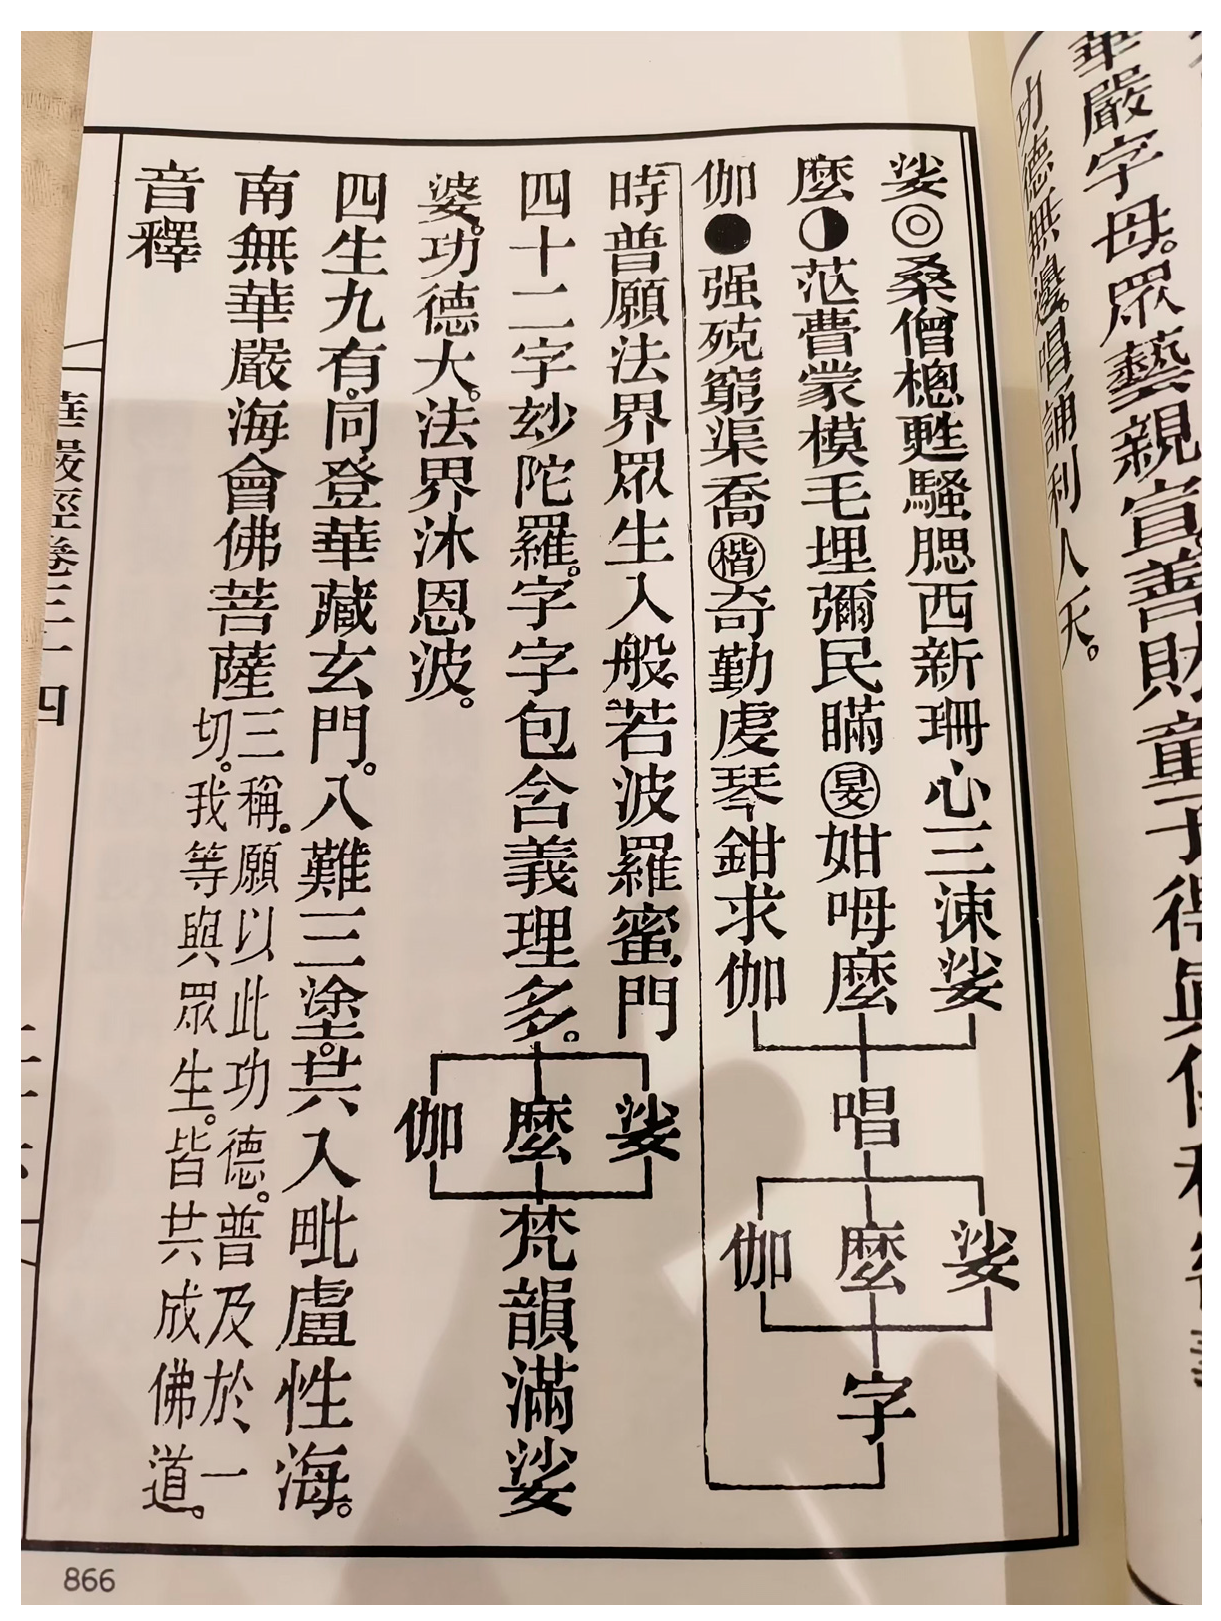 華嚴字母。眾藝親宣。善財童子得真傳
功德無邊。唱誦利人天。
娑◎桑僧樬甦騷腮西新珊心三涑娑
麼◑茫瞢蒙模毛埋彌民瞞㊀姏呣麼
伽●强殑窮渠喬楷奇勤虔琴鉗求伽
唱
娑
麼
伽
字
時普願法界眾生入般若波羅蜜門
四十二字玅陀羅。字字包含義理多。
娑
麼
伽
梵韻滿娑
婆。功德大。法界沐恩波。
四生九有。同登華藏玄門。八難三塗。共入毗盧性海。
南無華嚴海會佛菩薩
三稱。願以此功德。普及於一
切。我等與眾生。皆共成佛道。
音釋
華嚴經卷三十四
866